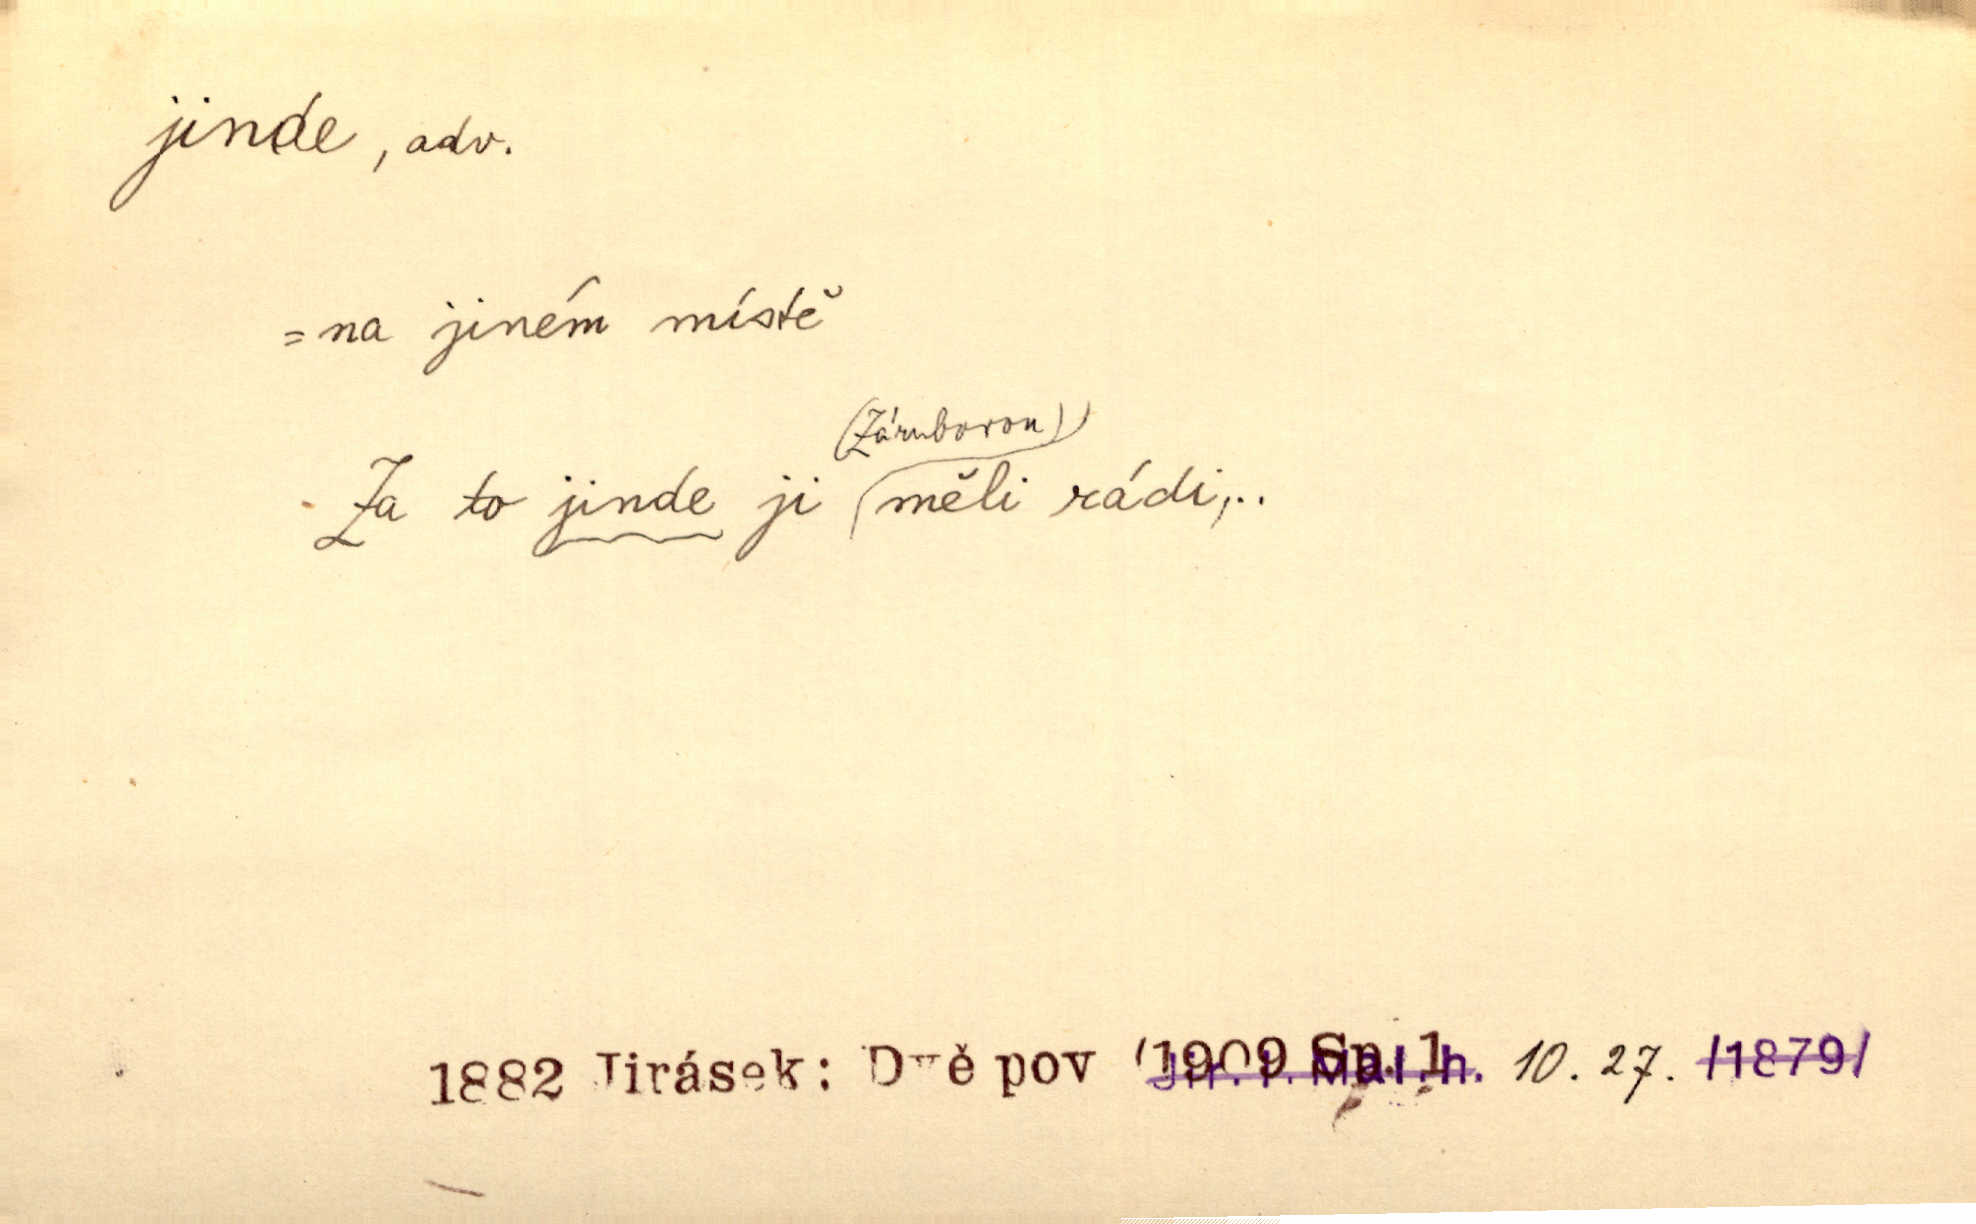 jinde, adv.
= na jiném místě
(Zárubovou)
Za to jinde ji měli rádi,..
1882 Jirásek: Dvě pov (1909 Sp. 1 10. 27. /1879/